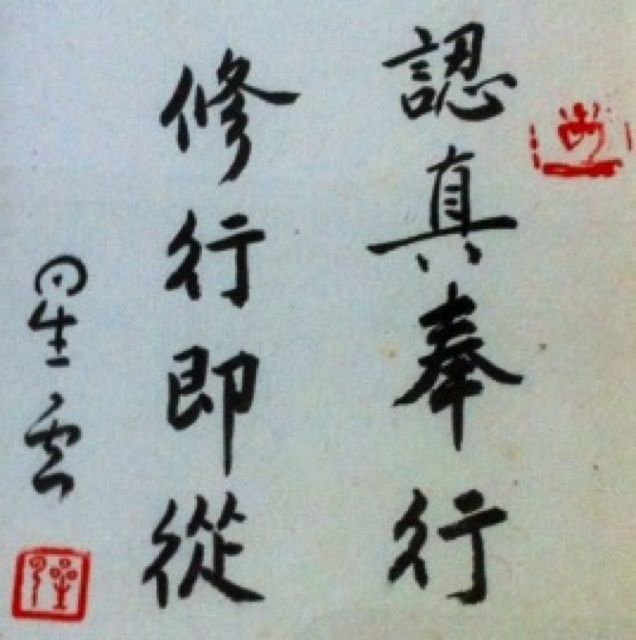 認真奉行
修行即從
星雲